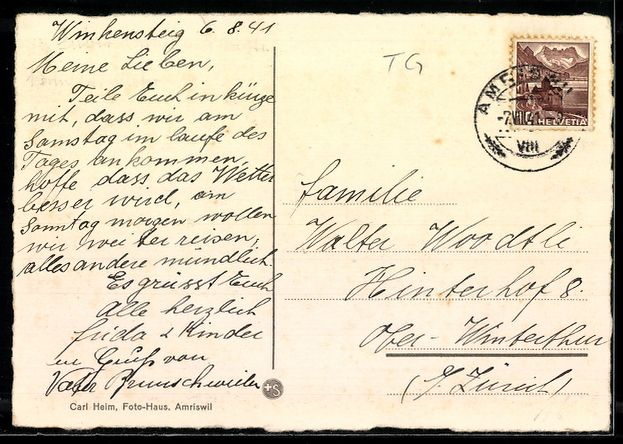 Winkensteig 6.8.41
Meine Lieben,
Teile Euch in kürze
mit, dass wir am
Samstag im laufe des
Tages ankommen,
hoffe dass das Wetter
besser wird, am
Sonntag morgen wollen
wir weiterreisen,
alles andere mündlich.
Es grüsst Euch
alle herzlich
Frida & Kinder
Gruß von
Vater Brunschweiler
+S
Carl Heim, Foto-Haus, Amriswil
TG
AMRISWIL
-7.VIII.41
VIII
HELVETIA
Familie
Walter Woodtli
Hinterhof 8.
Ober-Winterthur
(Zürich)